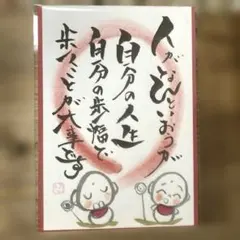 人がなんといおうが
自分の人生
自分の歩幅で
歩くことが大事です